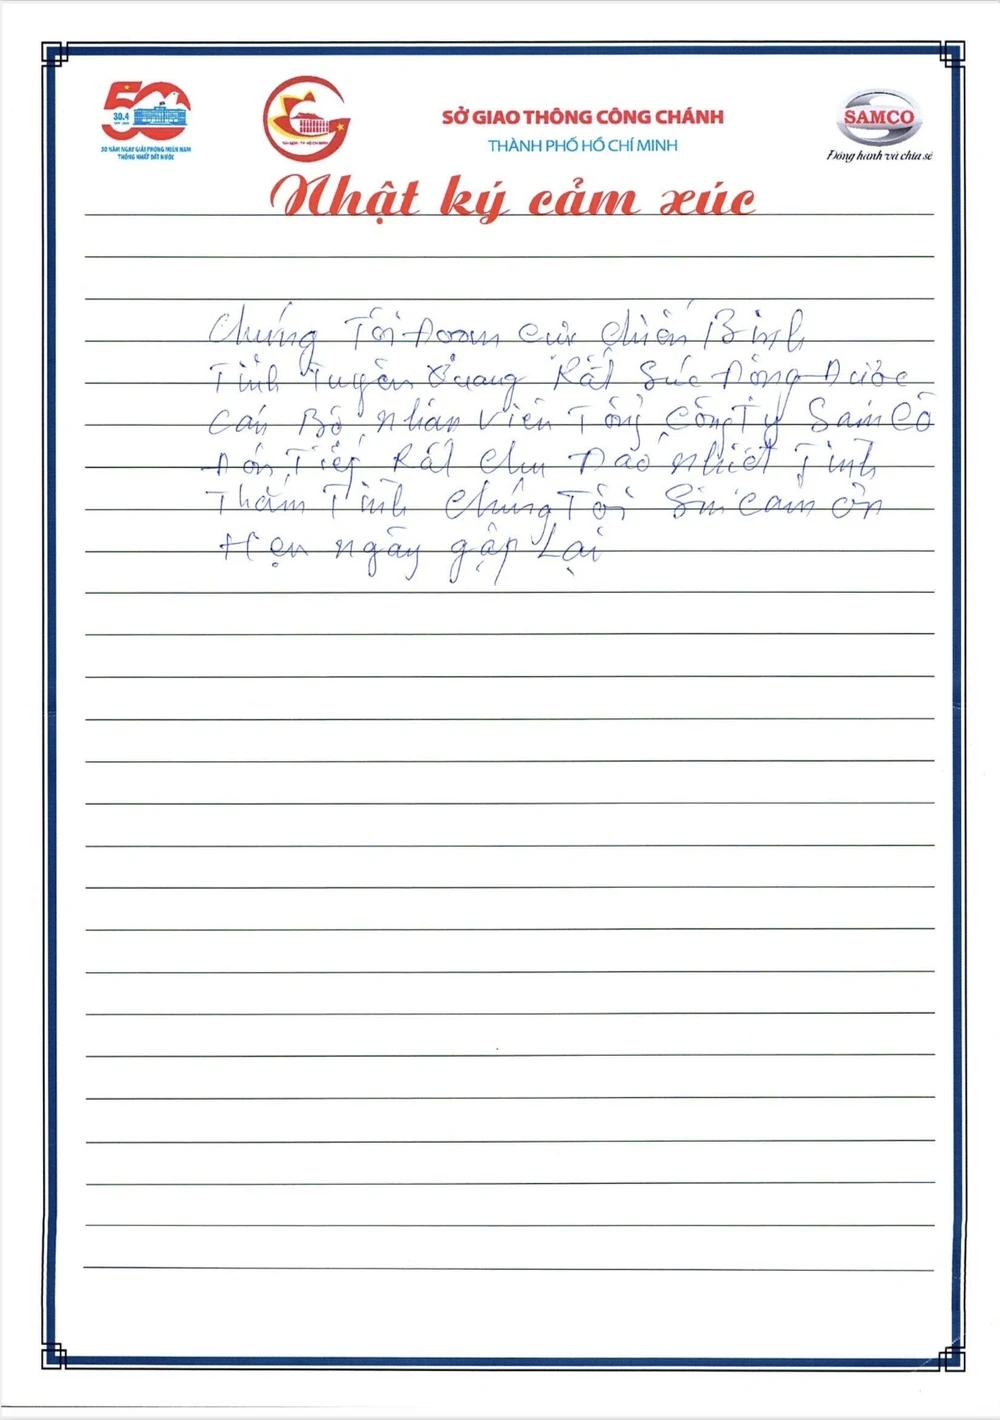 50
30.4
50 NĂM NGÀY GIẢI PHÓNG MIỀN NAM
THỐNG NHẤT ĐẤT NƯỚC
SỞ GIAO THÔNG CÔNG CHÁNH
THÀNH PHỐ HỒ CHÍ MINH
SAMCO
Đồng hành và chia sẻ
Nhật ký cảm xúc
Chúng Tôi Đoàn Cựu Chiến Binh
Tỉnh Tuyên Quang Rất Súc Động Được
Cán Bộ Nhân Viên Tổng Công Ty SamCô
Đón Tiếp Rất Chu Đáo Nhiệt Tình
Thắm Tình Chúng Tôi Sin Cảm ơn
Hẹn ngày gặp Lại